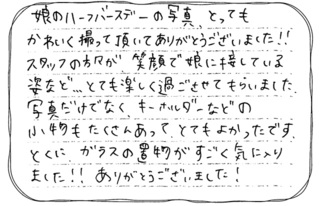 娘のハーフバースデーの写真、とっても
かわいく撮って頂いてありがとうございました!!
スタッフの方々が、笑顔で娘に接している
姿など...とても楽しく過ごさせてもらいました。
写真だけでなく、キーホルダーなどの
小物もたくさんあって、とてもよかったです。
とくに、ガラスの置物がすごく気に入り
ました!! ありがとうございました!